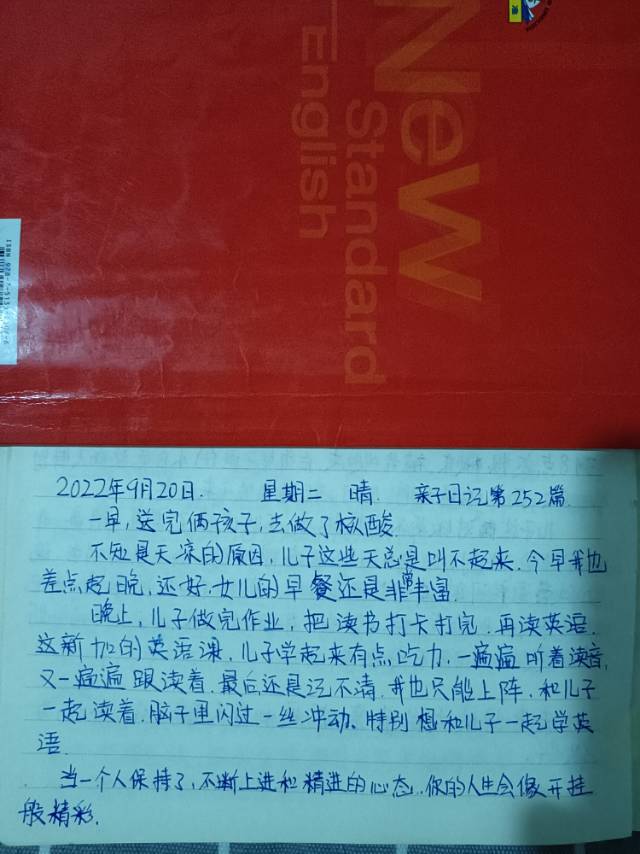 New
Standard
English
2022年9月20日. 星期二 晴. 亲子日记第252篇.
一早,送完俩孩子,去做了核酸.
不知是天凉的原因,儿子这些天总是叫不起来.今早我也
差点起晚,还好.女儿的早餐还是非常丰富.
晚上,儿子做完作业,把读书打卡打完.再读英语.
这新加的英语课,儿子学起来有点吃力,一遍遍听着读音,
又一遍遍跟读着.最后还是记不清.我也只能上阵,和儿子
一起读着.脑子里闪过一丝冲动、特别想和儿子一起学英
语.
当一个人保持了,不断上进和精进的心态..你的人生会像开挂
般精彩.